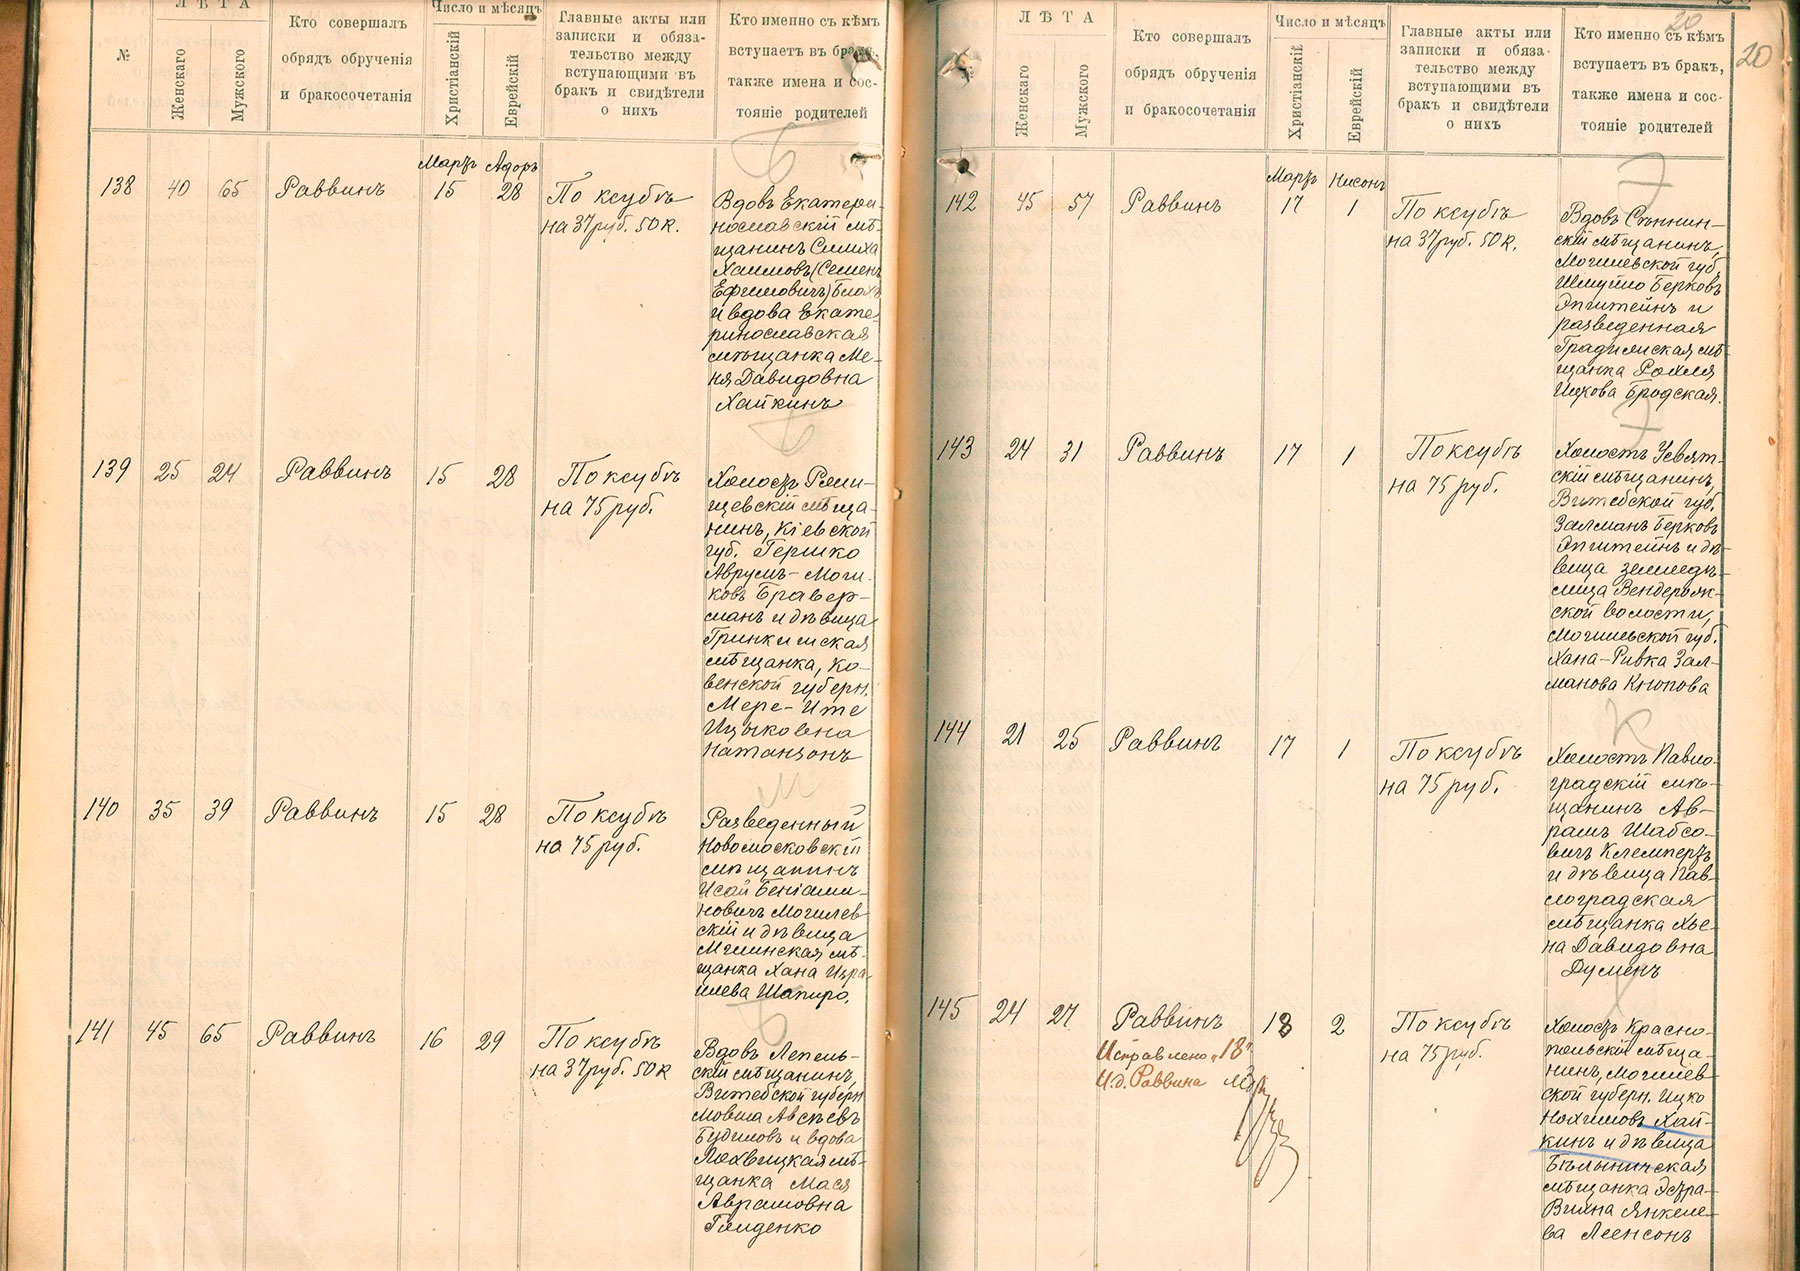 ЛѢТА
№
Женскаго
Мужского
Кто совершалъ
обрядъ обрученія
и бракосочетанія
Число и мѣсяцъ
Христіанскій
Еврейскій
Главные акты или
записки и обяза-
тельство между
вступающими въ
бракъ и свидѣтели
о нихъ
Кто именно съ кѣмъ
вступаетъ въ бракъ,
также имена и сос-
тояніе родителей
Б
Мартъ Адоръ
138 40 65 Раввинъ 15 28 По ксубѣ
на 37 руб. 50 к.
Вдовъ Екатери-
нославскій мѣ-
щанинъ Симха
Хаимовъ (Семенъ
Ефимовичъ) Блохъ
и вдова Екате-
ринославская
мѣщанка Ме-
ня Давидовна
Хайкинъ
Б
139 25 24 Раввинъ 15 28 По ксубѣ
на 75 руб.
Холостъ Ржи-
щевскій мѣща-
нинъ, Кіевской
губ. Гершко
Аврумъ-Мош-
ковъ Бравер-
манъ и дѣвица
Гринкишская
мѣщанка, Ко-
венской губерн.
Мере-Ите
Ицыковна
Натанзонъ
М
140 35 39 Раввинъ 15 28 По ксубѣ
на 75 руб.
Разведенный
Новомосковскій
мѣщанинъ
Исай Беніами-
новичъ Могилев-
скій и дѣвица
Мглинская мѣ-
щанка Хана Изра-
илева Шапиро.
Б
141 45 65 Раввинъ 16 29 По ксубѣ
на 37 руб. 50 к
Вдовъ Лепель-
скій мѣщанинъ,
Витебской губерн
Мовша Авсѣевъ
Будиловъ и вдова
Лохвицкая мѣ-
щанка Мася
Аврамовна
Гайденко
20
20
ЛѢТА
Женскаго
Мужского
Кто совершалъ
обрядъ обрученія
и бракосочетанія
Число и мѣсяцъ
Христіанскій
Еврейскій
Главные акты или
записки и обяза-
тельство между
вступающими въ
бракъ и свидѣтели
о нихъ
Кто именно съ кѣмъ
вступаетъ въ бракъ,
также имена и сос-
тояніе родителей
Э
Мартъ Нисонъ
142 45 57 Раввинъ 17 1 По ксубѣ
на 37 руб. 50 к.
Вдовъ Сѣннин-
скій мѣщанинъ,
Могилевской губ.
Шмуйло Берковъ
Эпштейнъ и
разведенная
Градижская мѣ-
щанка Рохля
Ицкова Бродская.
Э
143 24 31 Раввинъ 17 1 По ксубѣ
на 75 руб.
Холостъ Усвят-
скій мѣщанинъ,
Витебской губ.
Залманъ Берковъ
Эпштейнъ и дѣ-
вица земледѣ-
лица Вендерож-
ской волости,
Могилевской губ.
Хана-Ривка Зал-
манова Кнопова
К
144 21 25 Раввинъ 17 1 По ксубѣ
на 75 руб.
Холостъ Павло-
градскій мѣ-
щанинъ Ав-
рамъ Шабсо-
вичъ Клемперъ
и дѣвица Пав-
лоградская
мѣщанка Хье-
на Давидовна
Думенъ
145 24 27 Раввинъ 18 2 По ксубѣ
на 75 руб.
Исправлено „18"
И.д. Раввина
Холостъ Красно-
польскій мѣща-
нинъ, Могилев-
ской губерн. Ицко
Нохимовъ Хай-
кинъ и дѣвица
Бѣлыничская
мѣщанка Эстра-
Вихна Янкеле-
ва Леенсонъ